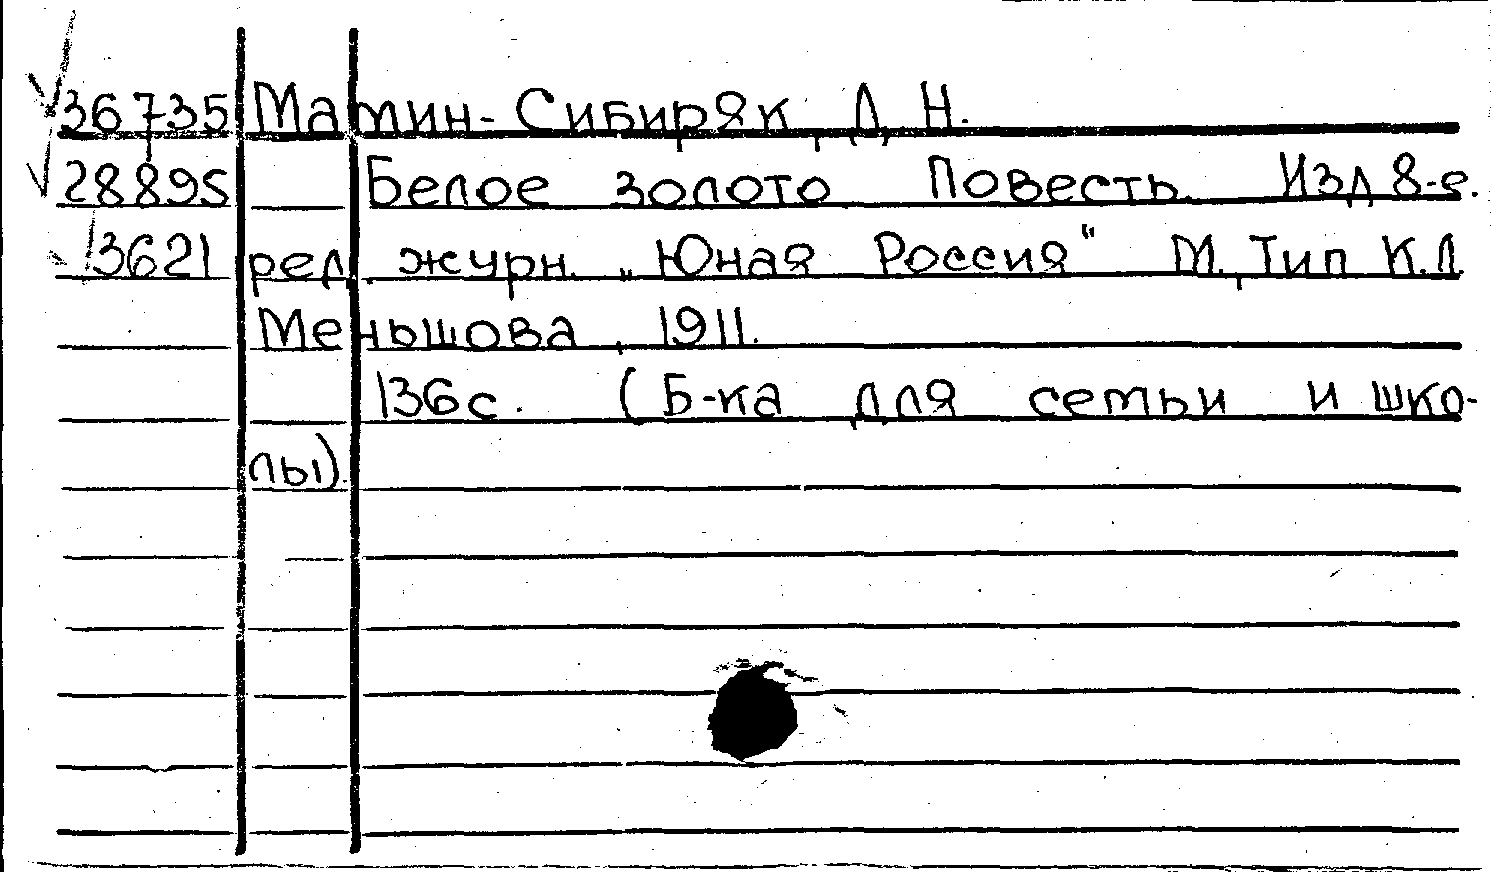 36735 Мамин-Сибиряк, Д. Н.
28895 Белое золото Повесть. Изд 8-е.
3621 ред. журн. „Юная Россия" М., Тип К.Л.
Меньшова, 1911.
136с. (Б-ка для семьи и шко-
лы).